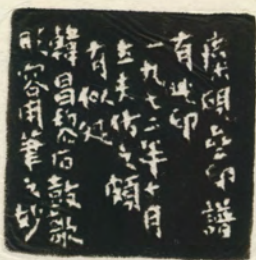 印譜
有此印
一九七二年十月
仿之頗
有似处
韓昌黎石鼓歌
形容用筆之妙